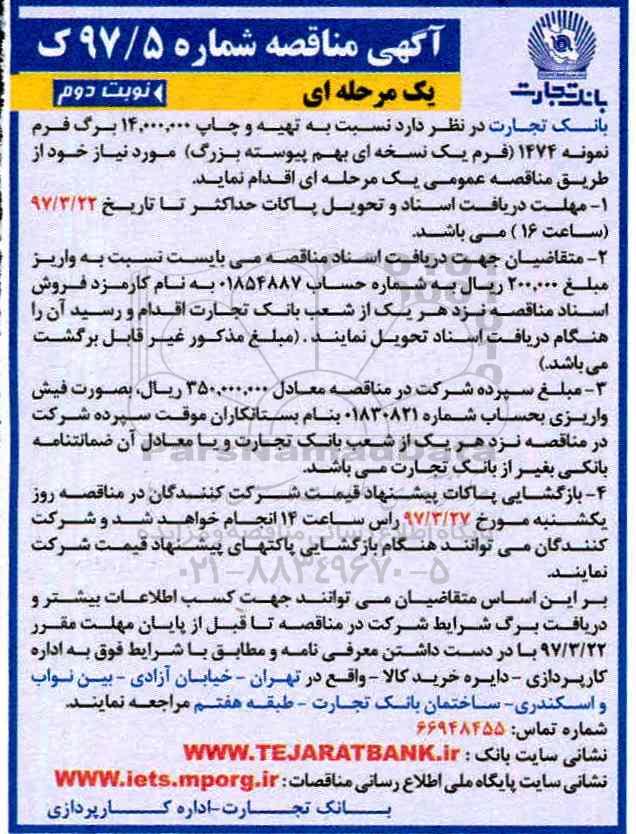 آگهی مناقصه شماره ۹۷/۵ ک
بانک تجارت
یک مرحله ای
نوبت دوم
بانک تجارت در نظر دارد نسبت به تهیه و چاپ ۱۴,۰۰۰,۰۰۰ برگ فرم
نمونه ۱۴۷۴ (فرم یک نسخه ای بهم پیوسته بزرگ) مورد نیاز خود از
طریق مناقصه عمومی یک مرحله ای اقدام نماید.
۱- مهلت دریافت اسناد و تحویل پاکات حداکثر تا تاریخ ۹۷/۳/۲۲
(ساعت ۱۶) می باشد.
۲- متقاضیان جهت دریافت اسناد مناقصه می بایست نسبت به واریز
مبلغ ۲۰۰,۰۰۰ ریال به شماره حساب ۰۱۸۵۴۸۸۷ به نام کارمزد فروش
اسناد مناقصه نزد هر یک از شعب بانک تجارت اقدام و رسید آن را
هنگام دریافت اسناد تحویل نمایند. (مبلغ مذکور غیر قابل برگشت
می باشد.)
۳- مبلغ سپرده شرکت در مناقصه معادل ۳۵۰,۰۰۰,۰۰۰ ریال، بصورت فیش
واریزی بحساب شماره ۰۱۸۳۰۸۲۱ بنام بستانکاران موقت سپرده شرکت
در مناقصه نزد هر یک از شعب بانک تجارت و یا معادل آن ضمانتنامه
بانکی بغیر از بانک تجارت می باشد.
ParsNamadData
۴- بازگشایی پاکات پیشنهاد قیمت شرکت کنندگان در مناقصه روز
یکشنبه مورخ ۹۷/۳/۲۷ راس ساعت ۱۴ انجام خواهد شد و شرکت
کنندگان می توانند هنگام بازگشایی پاکتهای پیشنهاد قیمت شرکت
نمایند.
۰۲۱-۸۸۳۴۹۶۷۰-۵
بر این اساس متقاضیان می توانند جهت کسب اطلاعات بیشتر و
دریافت برگ شرایط شرکت در مناقصه تا قبل از پایان مهلت مقرر
۹۷/۳/۲۲ با در دست داشتن معرفی نامه و مطابق با شرایط فوق به اداره
کارپردازی - دایره خرید کالا - واقع در تهران - خیابان آزادی - بین نواب
و اسکندری- ساختمان بانک تجارت - طبقه هفتم مراجعه نمایند.
شماره تماس: ۶۶۹۴۸۴۵۵
نشانی سایت بانک : WWW.TEJARATBANK.ir
نشانی سایت پایگاه ملی اطلاع رسانی مناقصات: WWW.iets.mporg.ir
بانک تجارت-اداره کارپردازی